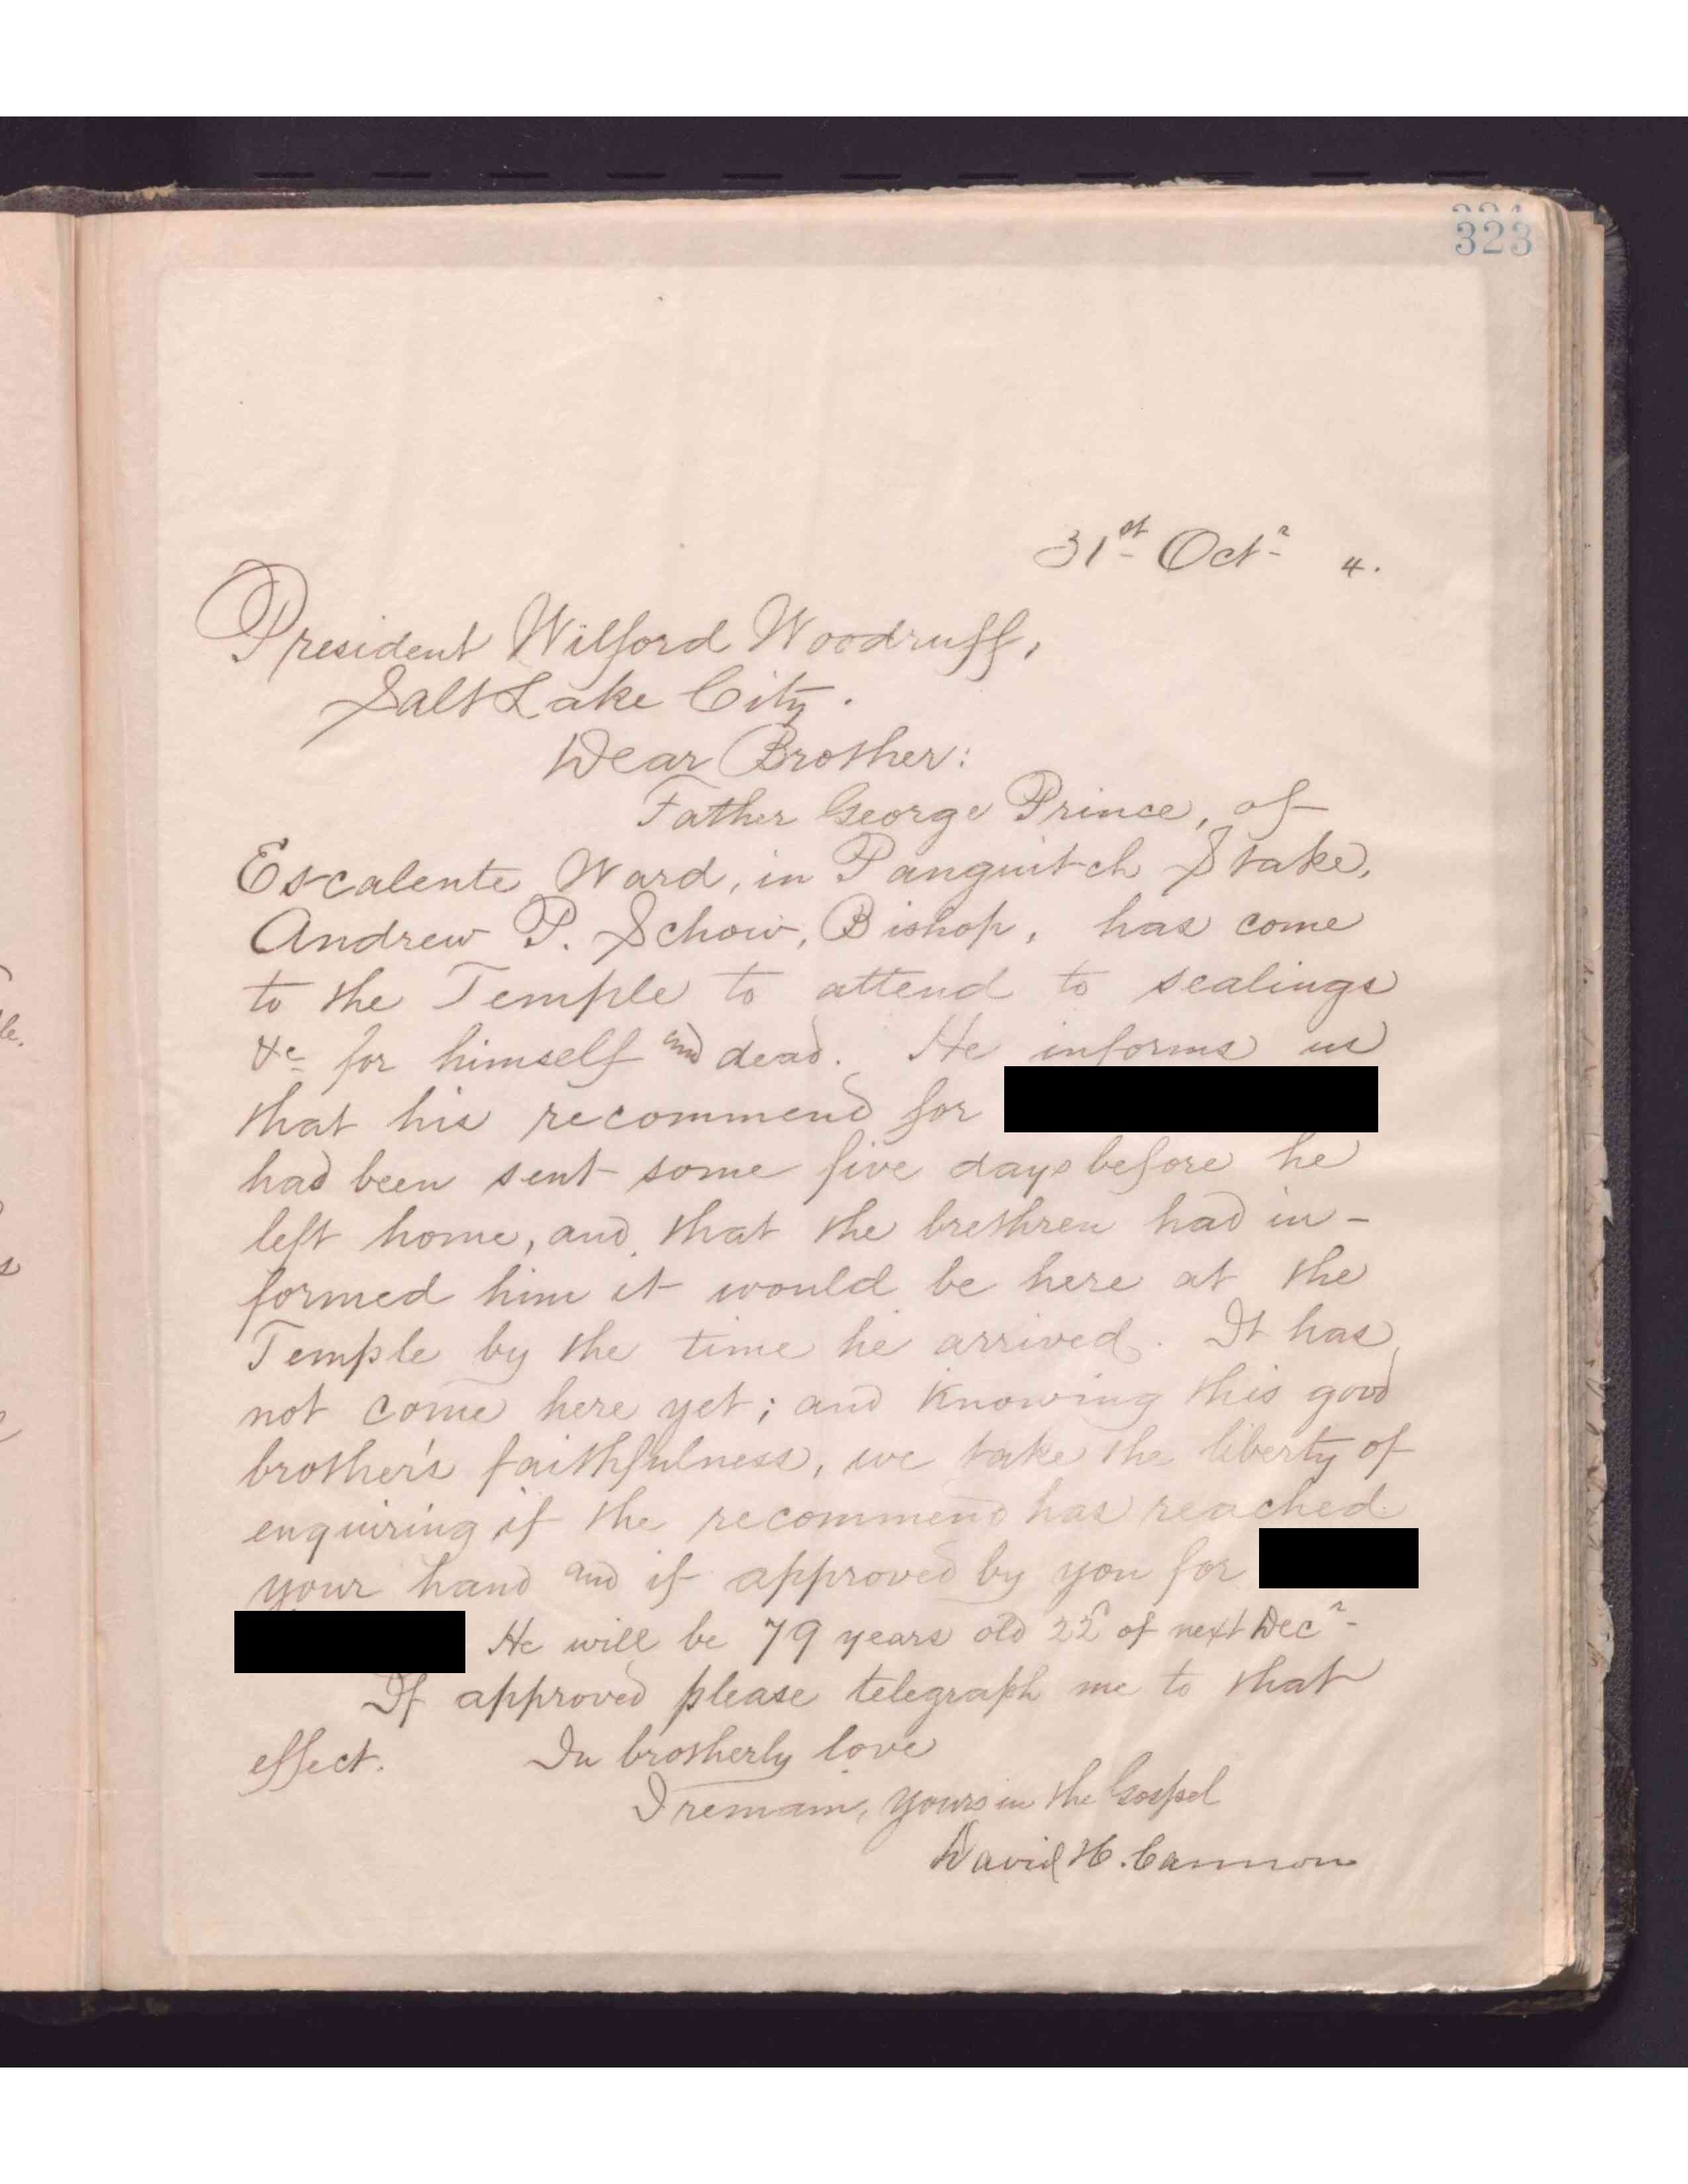 323
31st Octr 4.
President Wilford Woodruff,
Salt Lake City.
Dear Brother:
Father George Prince, of
Escalente Ward, in Panguitch Stake,
Andrew P. Schow, Bishop, has come
to the Temple to attend to sealings
&c for himself and dead. He informs us
that his recommend for
had been sent some five days before he
left home, and that the brethren had in-
formed him it would be here at the
Temple by the time he arrived. It has
not come here yet; and knowing this good
brother's faithfulness, we take the liberty of
enquiring if the recommend has reached
your hand and if approved by you for
He will be 79 years old 22d of next Decr
If approved please telegraph me to that
effect. In brotherly love
I remain, yours in the Gospel
David H. Cannon